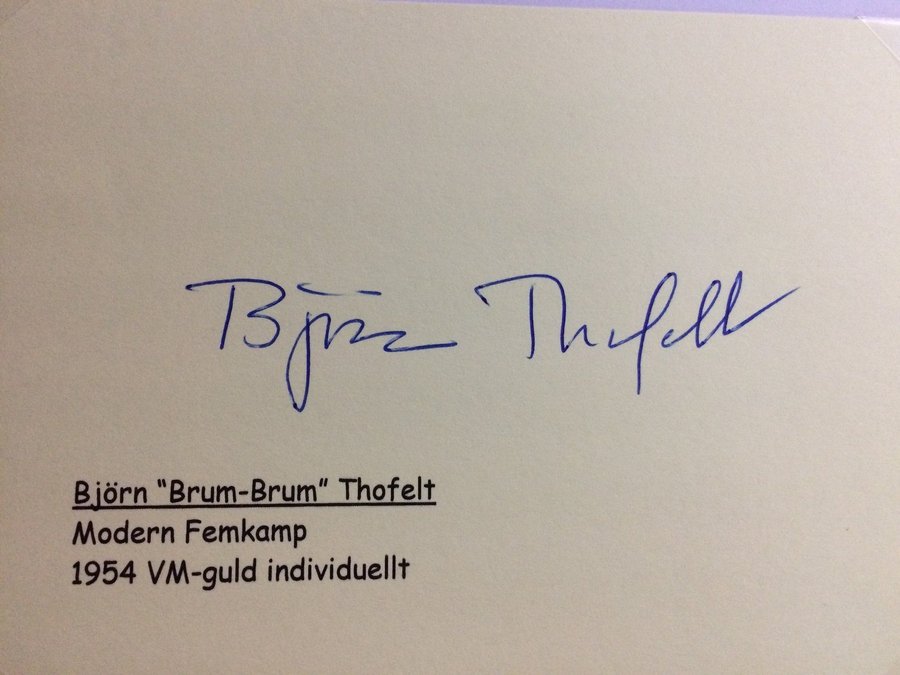 Björn Thofelt
Björn "Brum-Brum" Thofelt
Modern Femkamp
1954 VM-guld individuellt